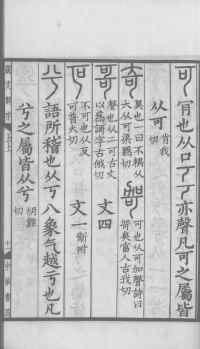 可 肎也从口丂丂亦聲凡可之屬皆
从可 肯我切
奇 異也一曰不耦从大从可渠羈切 哿 可也从可加聲詩曰哿矣富人古我切
哥 聲也从二可古文以爲謌字古俄切 文四
叵 不可也从反可普火切 文一新附
兮 語所稽也从丂八象气越亏也凡
兮之屬皆从兮 胡雞切